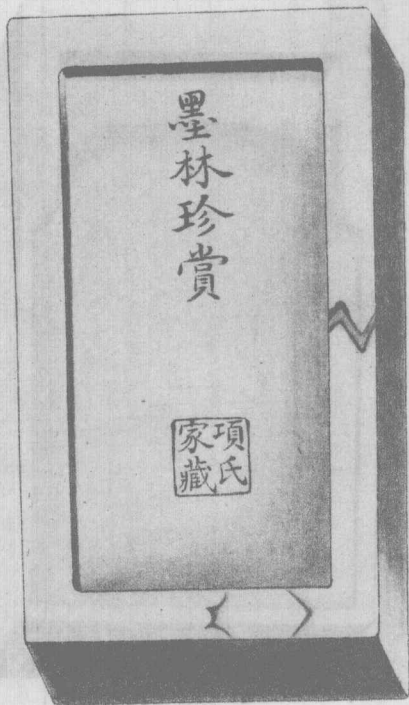 墨林珍賞
項氏
家藏